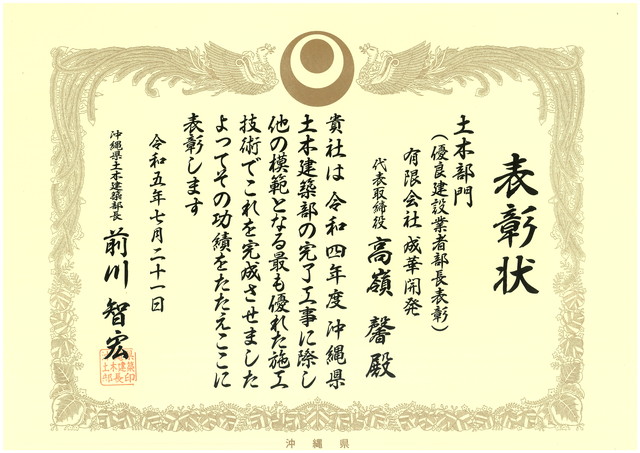 表彰状
土木部門
（優良建設業者部長表彰）
有限会社 成華開発
代表取締役 高嶺 馨 殿
貴社は 令和四年度 沖縄県
土木建築部の完了工事に際し
他の模範となる最も優れた施工
技術でこれを完成させました
よってその功績をたたえここに
表彰します
令和五年七月二十一日
沖縄県土木建築部長 前川 智宏
沖縄県